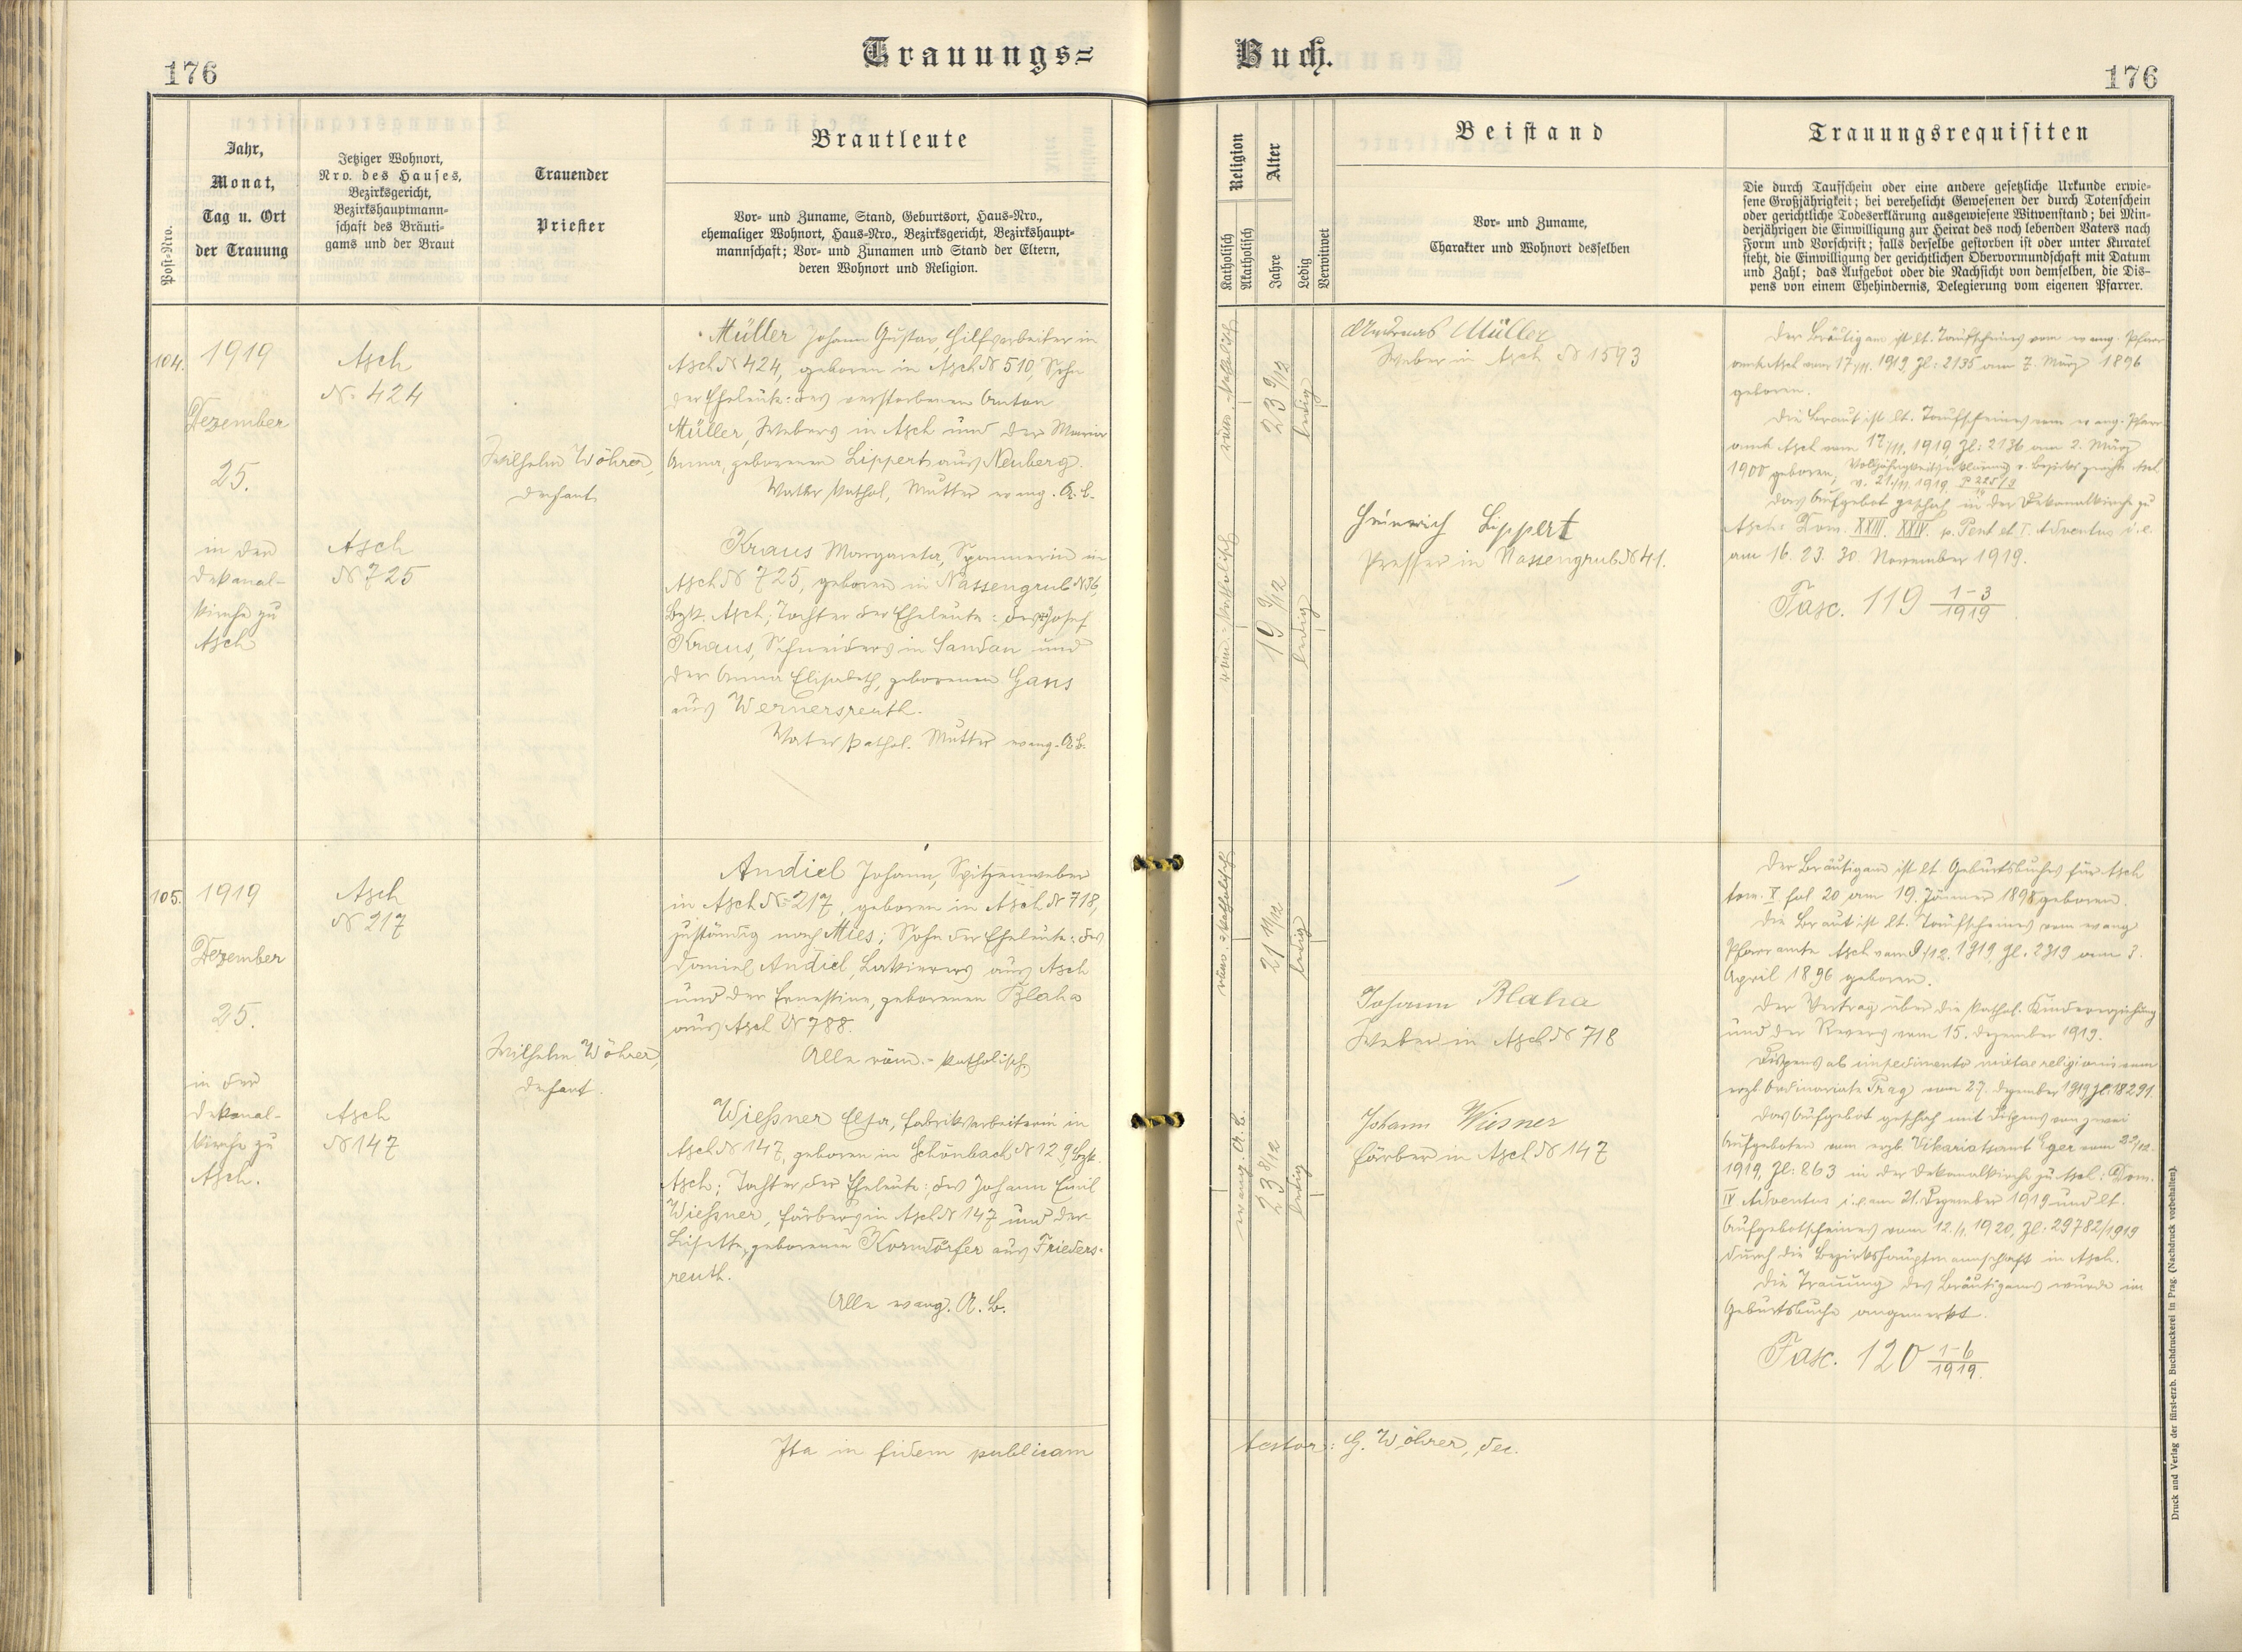 176
Trauungs=
Buch.
176
Post=Nro.
Jahr,
Monat,
Tag u. Ort
der Trauung
Jetziger Wohnort,
Nro. des Hauses,
Bezirksgericht,
Bezirkshauptmann=
schaft des Bräuti=
gams und der Braut
Trauender
Priester
Brautleute
Vor= und Zuname, Stand, Geburtsort, Haus=Nro.,
ehemaliger Wohnort, Haus=Nro., Bezirksgericht, Bezirkshaupt=
mannschaft; Vor= und Zunamen und Stand der Eltern,
deren Wohnort und Religion.
Religion
Katholisch
Akatholisch
Alter
Jahre
Ledig
Verwitwet
Beistand
Vor= und Zuname,
Charakter und Wohnort desselben
Trauungsrequisiten
Die durch Taufschein oder eine andere gesetzliche Urkunde erwie=
sene Großjährigkeit; bei verehelicht Gewesenen der durch Totenschein
oder gerichtliche Todeserklärung ausgewiesene Witwenstand; bei Min=
derjährigen die Einwilligung zur Heirat des noch lebenden Vaters nach
Form und Vorschrift; falls derselbe gestorben ist oder unter Kuratel
steht, die Einwilligung der gerichtlichen Obervormundschaft mit Datum
und Zahl; das Aufgebot oder die Nachsicht von demselben, die Dis=
pens von einem Ehehindernis, Delegierung vom eigenen Pfarrer.
104.
1919
Dezember
25.
in der
Dekanal-
kirche zu
Asch
Asch
N= 424
Asch
N 725
Wilhelm Wöhrer,
Dechant
Müller Johann Gustav, Hilfsarbeiter in
Asch N 424, geboren in Asch N 510, Sohn
der Eheleute: des verstorbenen Anton
Müller, Webers in Asch und der Maria
Anna, geborenen Lippert aus Neuberg.
Vater kathol., Mutter evang. A. B.
Kraus Margareta, Spannerin in
Asch N 725, geboren in Nassengrub N 36,
Bzk. Asch; Tochter der Eheleute: des Josef
Kraus, Schneiders in Sandau und
der Anna Elisabeth, geborenen Gans
aus Wernersreuth.
Vater kathol. Mutter evang. A. B.
röm.-katholisch
23 9/12
ledig
röm.-katholisch
19 9/12
ledig
Andreas Müller
Weber in Asch N 1593
Heinrich Lippert
Presser in Nassengrub N 41.
Der Bräutigam ist lt. Taufscheines vom evang. Pfarr
amte Asch vom 17/11. 1919, Zl: 2135 am 7. März 1896
geboren.
Die Braut ist lt. Taufscheines vom evang. Pfarr
amt Asch vom 17/11. 1919, Zl: 2136 am 2. März
1900 geboren; Volljährigkeitserklärung v. Bezirksgericht Asch
v. 21/11. 1919. P 225/19
Das Aufgebot geschah in der Dekanalkirche zu
Asch: Dom. XXIII. XXIV. p. Pent et I. Adventus i. e.
am 16. 23. 30 November 1919.
Fasc. 119 1-3/1919
105.
1919
Dezember
25.
in der
Dekanal-
kirche zu
Asch.
Asch
N 217
Asch
N 147
Wilhelm Wöhrer,
Dechant.
Andiel Johann, Spitzenweber
in Asch N= 217, geboren in Asch N 718,
zuständig nach Mies; Sohn der Eheleute: des
Daniel Andiel, Lakierers aus Asch
und der Ernestine, geborenen Blaha
aus Asch N 788.
Alle röm.-katholisch.
Wießner Elsa, Fabriksarbeiterin in
Asch N 147, geboren in Schönbach N 129, Bzk.
Asch; Tochter der Eheleute: des Johann Emil
Wießner, Färbers in Asch N 147 und der
Lisette, geborenen Korndörfer aus Frieders-
reuth.
Alle evang. A. B.
röm.-katholisch
21 11/12
ledig
evang. A. B.
23 8/12
ledig
Johann Blaha
Weber in Asch N 718
Johann Wiesner
Färber in Asch N 147
Der Bräutigam ist lt. Geburtsbuches für Asch
tom. V fol. 20 am 19. Jänner 1898 geboren.
Die Braut ist lt. Taufscheines vom evang
Pfarramte Asch vom 9/12. 1919, Zl. 2319 am 3.
April 1896 geboren.
Der Vertrag über die kathol. Kindererziehung
und der Revers vom 15. Dezember 1919.
Dispens ab impedimento mixtae religionis vom
erzb. Ordinariate Prag vom 27. Dezember 1919, Zl: 18291.
Das Aufgebot geschah mit Dispens von zwei
Aufgeboten vom erzb. Vikariatsamt Eger vom 22/12.
1919, Zl: 863 in der Dekanalkirche zu Asch: Dom.
IV. Adventus i. e. am 21. Dezember 1919 und lt.
Aufgebotscheines vom 12./1. 1920, Zl: 29782/1919
durch die Bezirkshauptmannschaft in Asch.
Die Trauung des Bräutigams wurde im
Geburtsbuche angemerkt.
Fasc. 120 1-6/1919.
Ita in fidem publicam
testor: G. Wöhrer, Dec.
Druck und Verlag der fürst=erzb. Buchdruckerei in Prag. (Nachdruck vorbehalten).